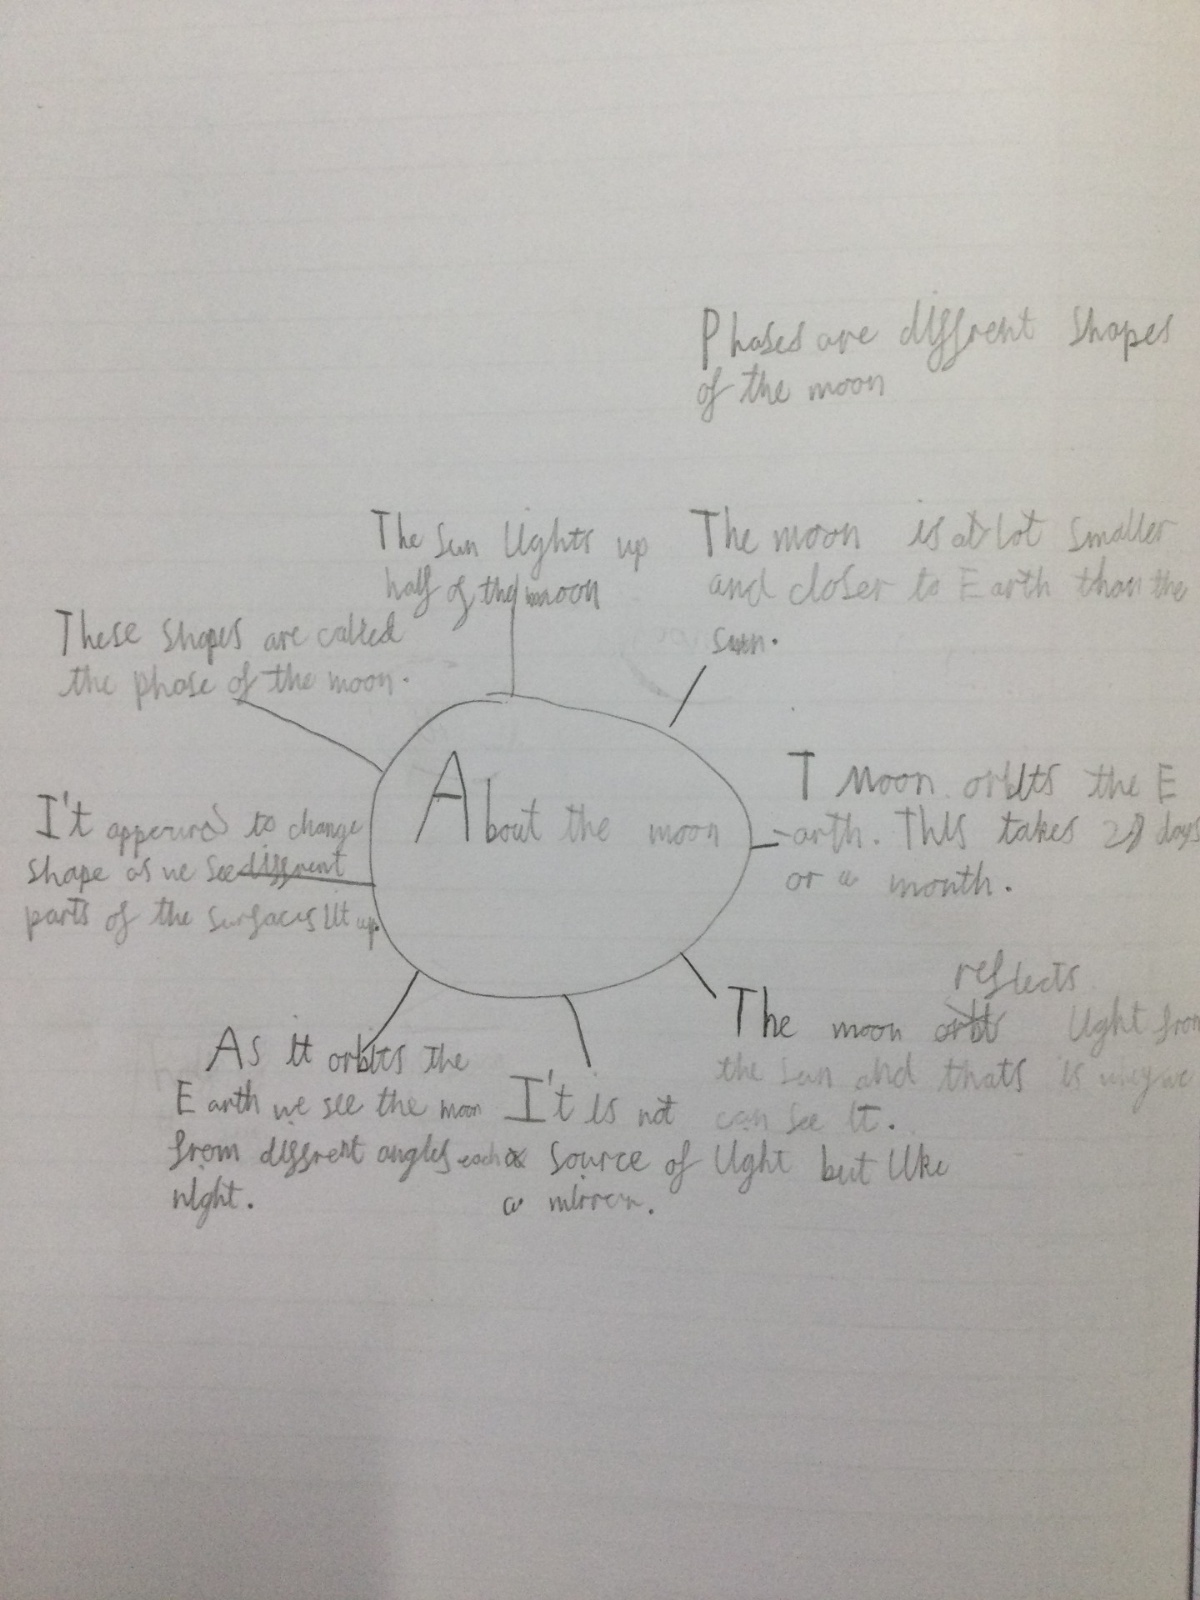 Phases are diffrent shapes
of the moon
The sun lights up
half of the moon
The moon is a lot smaller
and closer to Earth than the
sun.
These shapes are called
the phase of the moon.
About the moon
T Moon orbits the E
-arth. This takes 28 days
or a month.
I't appeared to change
shape as we see diffrent
parts of the surfaces lit up.
reflects
The moon light from
the sun and thats is why we
can see it.
As it orbits the
Earth we see the moon
from diffrent angles each
night.
I't is not
source of light but like
a mirror.